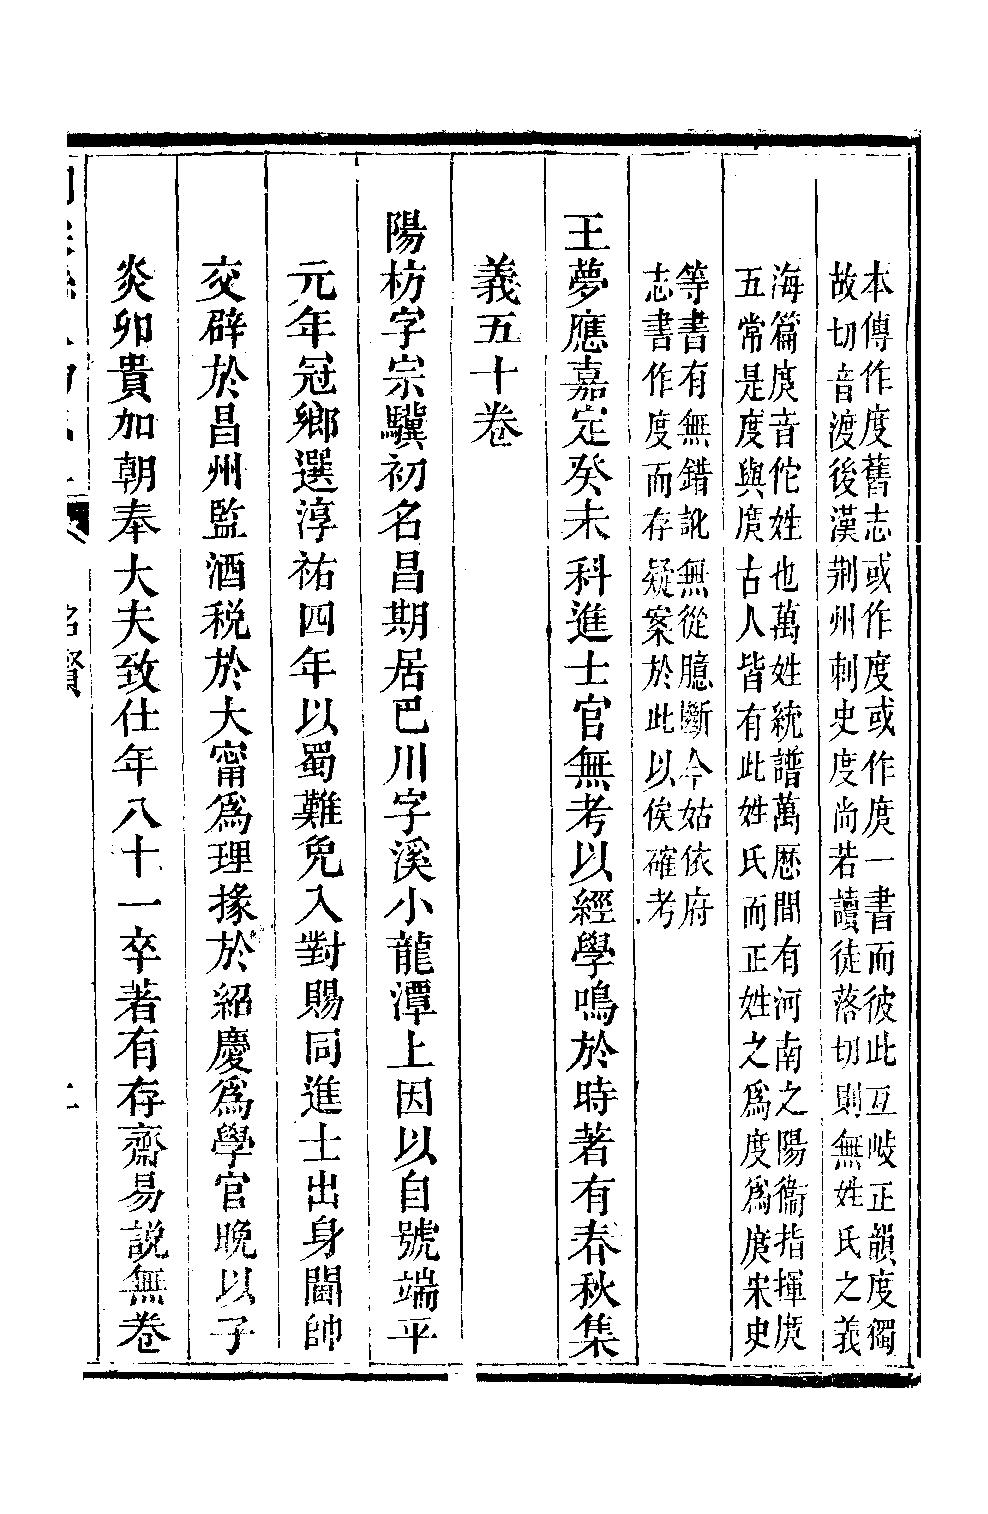 本傳作度舊志或作度或作庹一書而彼此互岐正韻度獨
故切音渡後漢荆州刺史度尚若讀徒落切則無姓氏之義
海篇庹音佗姓也萬姓統譜萬厯間有河南之陽衞指揮庹
五常是度與庹古人皆有此姓氏而正姓之爲度爲庹宋史
等書有無錯訛無從臆斷今姑依府
志書作度而存疑案於此以俟確考
王夢應嘉定癸未科進士官無考以經學鳴於時著有春秋集
義五十卷
陽枋字宗驥初名昌期居巴川字溪小龍潭上因以自號端平
元年冠鄉選淳祐四年以蜀難免入對賜同進士出身閫帥
交辟於昌州監酒税於大甯爲理掾於紹慶爲學官晚以子
炎卯貴加朝奉大夫致仕年八十一卒著有存齋易説無卷
名賢